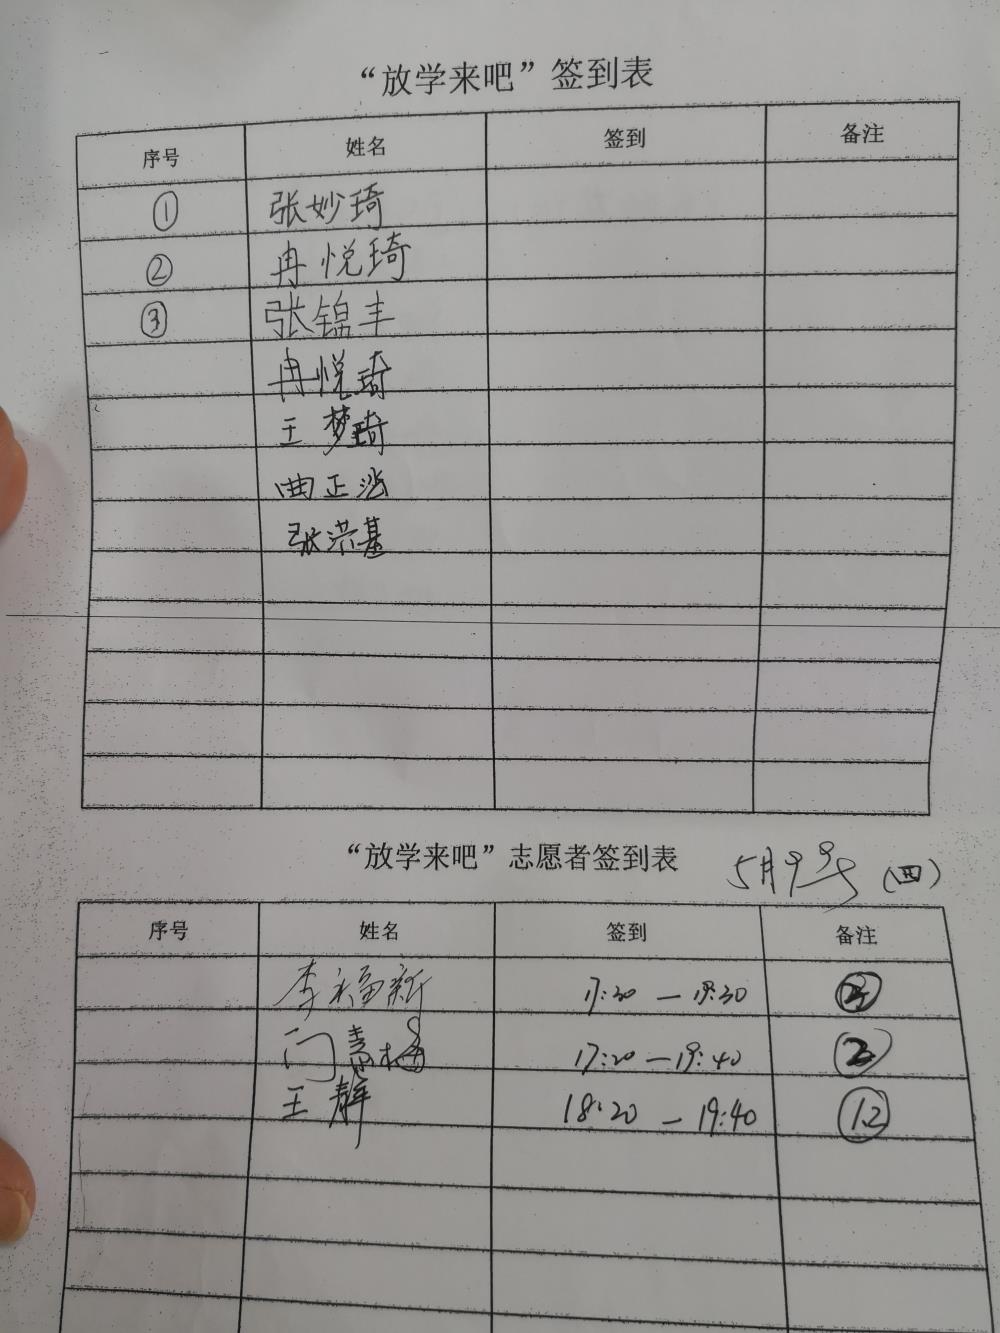 “放学来吧”签到表
序号 姓名 签到 备注
① 张妙琦
② 冉悦琦
③ 张锦丰
冉悦琦
王梦琦
曲正
张洪基
“放学来吧”志愿者签到表 5月9号(四)
序号 姓名 签到 备注
李福新 17:30 — 19:30 ②
门素梅 17:20 — 19:40 ②
王静 18:20 — 19:40